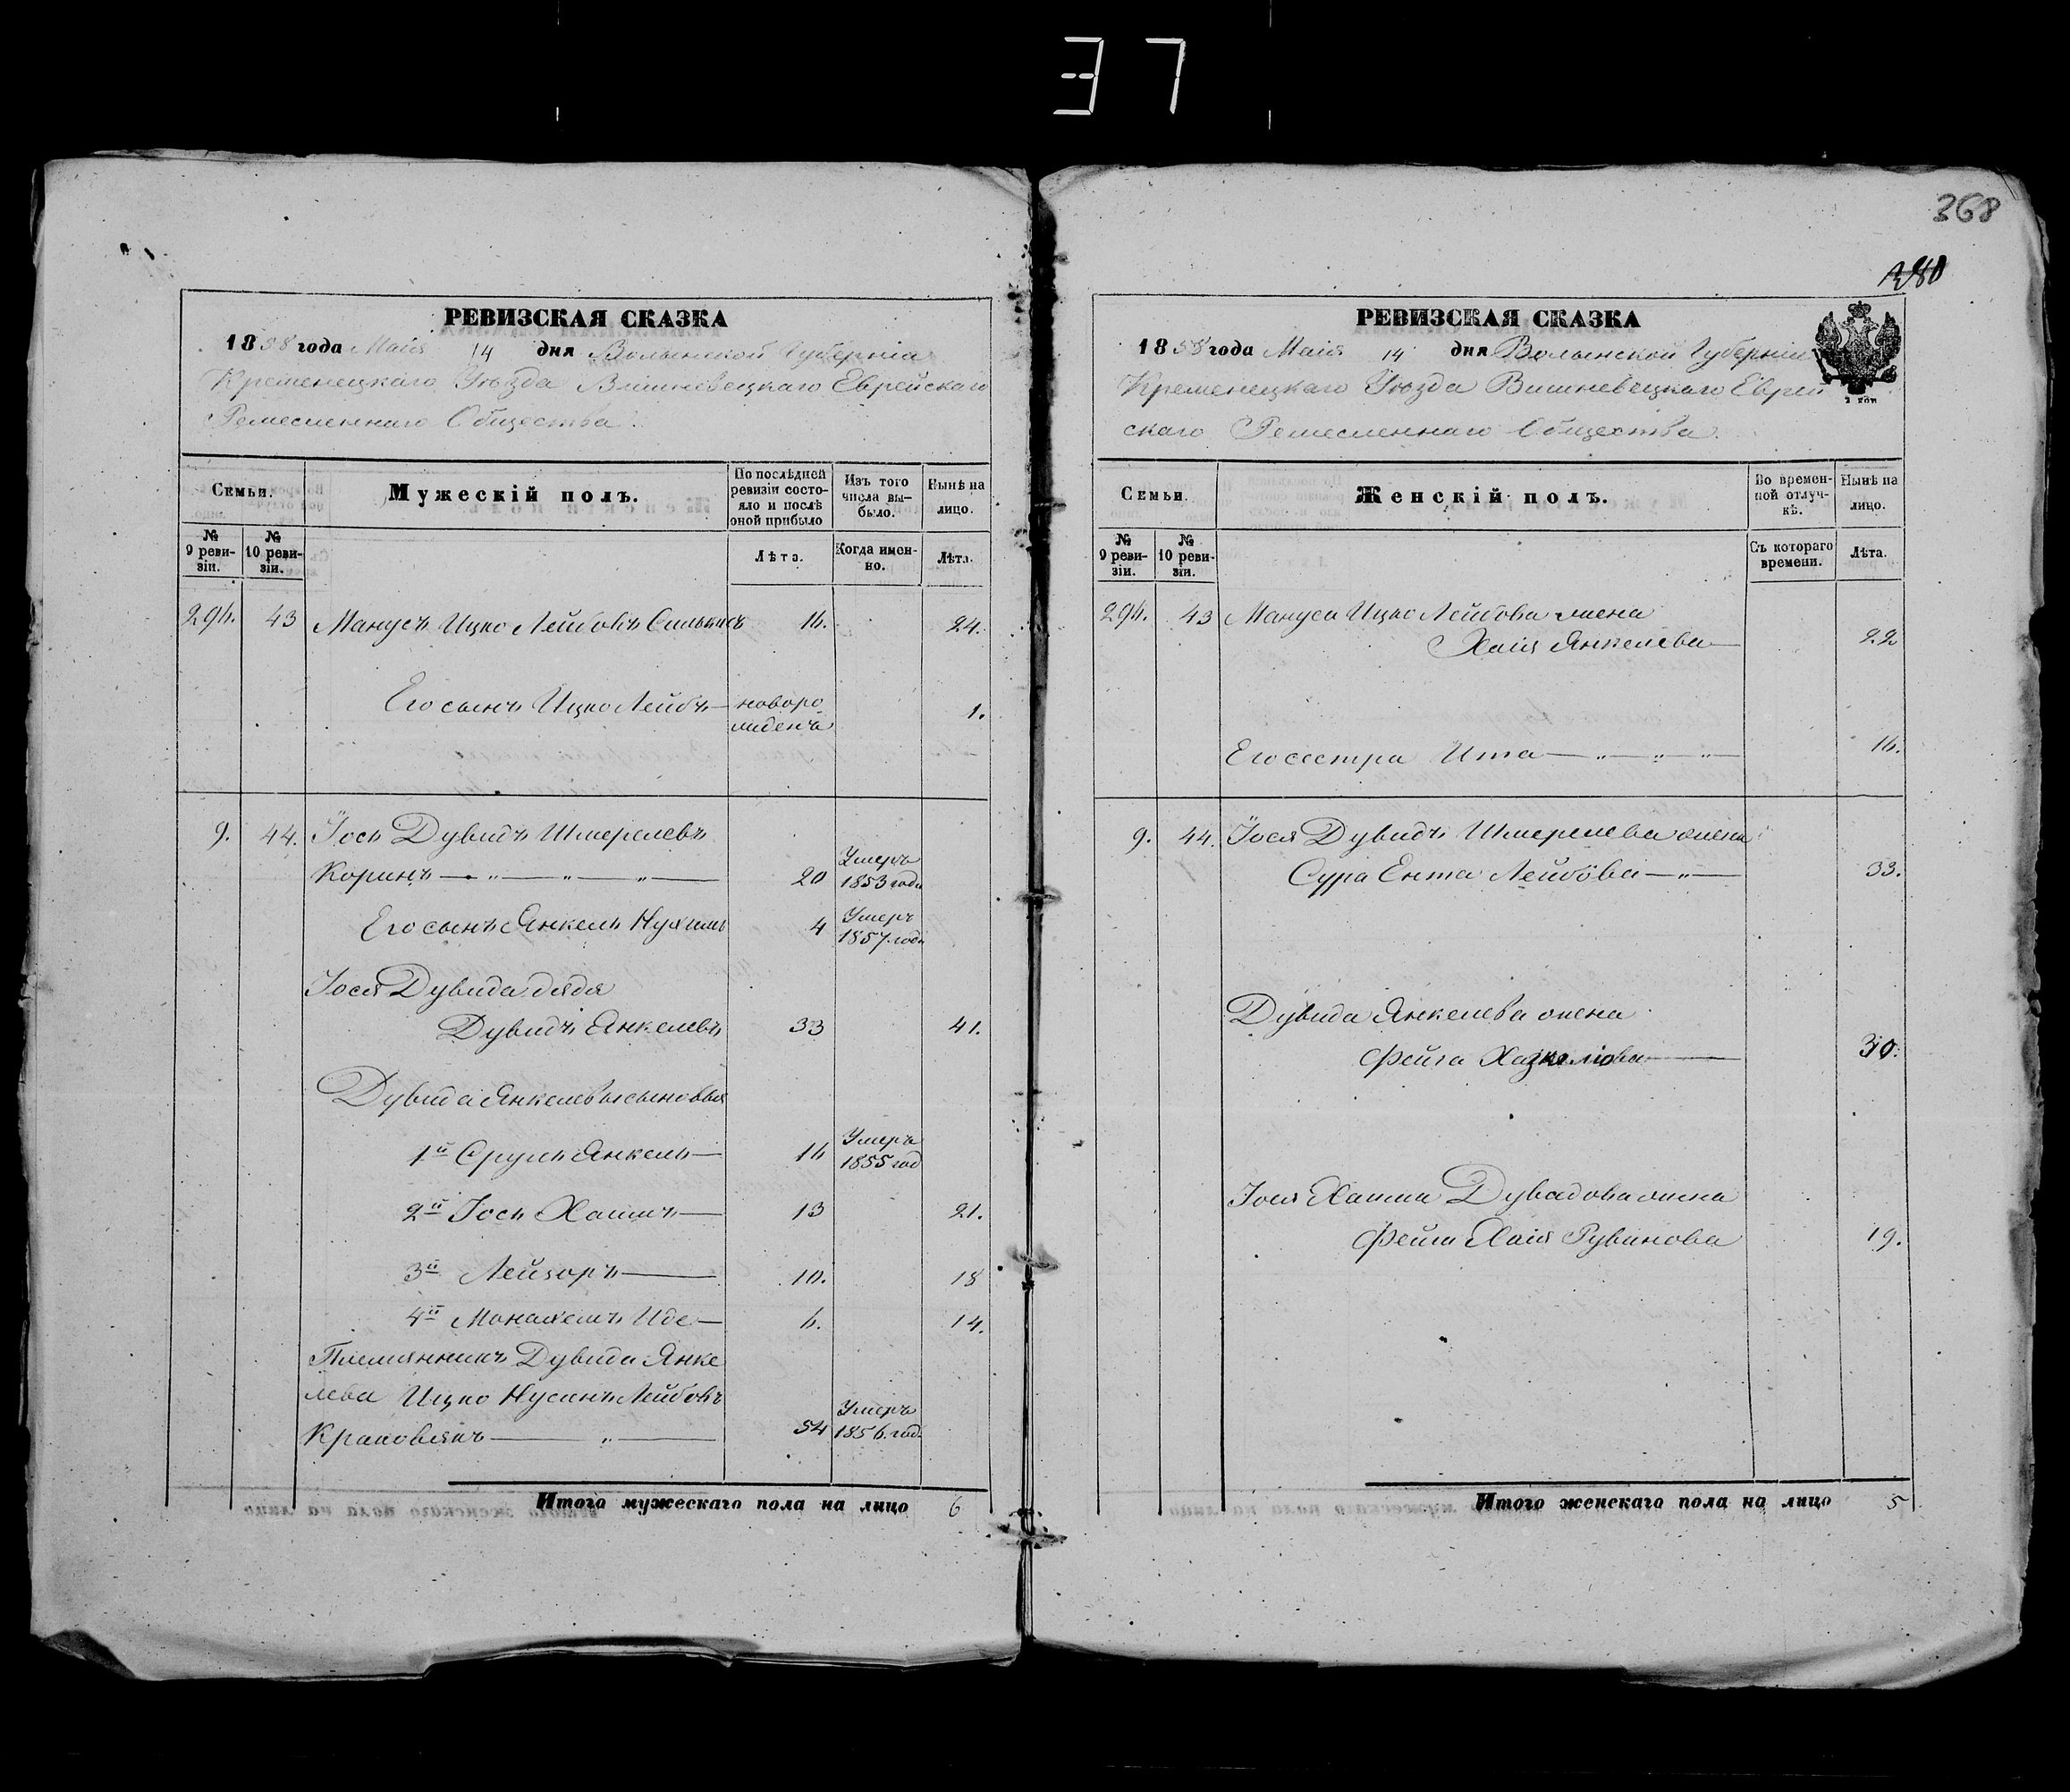 37
368
380
РЕВИЗСКАЯ СКАЗКА
1858 года Маія 14 дня Волынской Губерніи
Кременецкаго Уѣзда Вишневецкаго Еврейскаго
Ремесленнаго Общества.
Семьи.
Мужескій полъ.
По послѣдней ревизіи состо-
яло и послѣ оной прибыло
Изъ того числа вы-
было.
Нынѣ на лицо.
№ 9 реви-
зіи.
№ 10 реви-
зіи.
Лѣта.
Когда имен-
но.
Лѣта.
294. 43 Манусъ Ицко Лейбовъ 16. 24.
Его сынъ Ицко Лейбъ — новоро
жденъ 1.
9. 44. Іось Дувидъ Шмерелевъ
Коринъ — „ — „ — „ — 20 Умеръ
1853 года
Его сынъ Янкель Нухимъ 4 Умеръ
1857 года
Іося Дувида дядя
Дувидъ Янкелевъ 33 41.
Дувида Янкелевы сыновья
1й Сруль Янкель — 16 Умеръ
1855 год
2й Іось Хаимъ — 13 21.
3й Лейзоръ — 10. 18
4й Монашемъ Иде — 6. 14.
Племянникъ Дувида Янке
лева Ицко Нусинъ Лейбовъ
Краковякъ — „ — 54 Умеръ
1856 год.
Итого мужескаго пола на лицо 6
РЕВИЗСКАЯ СКАЗКА
1858 года Маія 14 дня Волынской Губерніи
Кременецкаго Уѣзда Вишневецкаго Еврей
скаго Ремесленнаго Общества.
Семьи.
Женскій полъ.
Во времен-
ной отлуч-
кѣ.
Нынѣ на лицо.
№ 9 реви-
зіи.
№ 10 реви-
зіи.
Съ котораго времени.
Лѣта.
294. 43 Мануса Ицко Лейбова жена
Хаія Янкелева — 22
Его сестра Ита — „ — „ — „ 16.
9. 44. Іося Дувидъ Шмерелева жена
Сура Ента Лейбова — „ — 33.
Дувида Янкелева жена
Фейга Хазкелiова — 30.
Іося Хаима Дувидова жена
Фейга Хаія Рувинова 19.
Итого женскаго пола на лицо 5